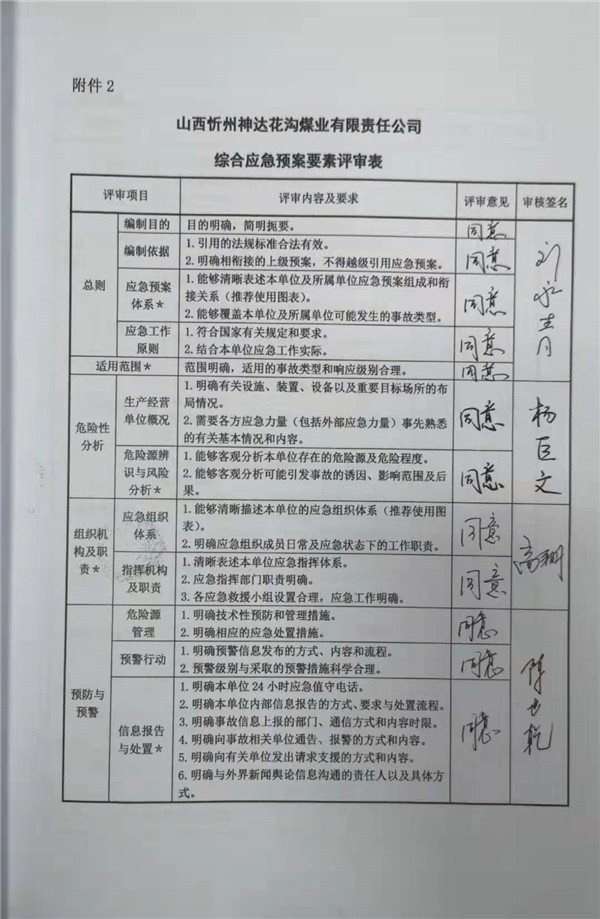 附件 2
山西忻州神达花沟煤业有限责任公司
综合应急预案要素评审表
评审项目 评审内容及要求 评审意见 审核签名
总则
编制目的 目的明确，简明扼要。 同意
编制依据 1.引用的法规标准合法有效。
2.明确相衔接的上级预案，不得越级引用应急预案。 同意
应急预案
体系* 1.能够清晰表述本单位及所属单位应急预案组成和衔
接关系（推荐使用图表）。
2.能够覆盖本单位及所属单位可能发生的事故类型。 同意
应急工作
原则 1.符合国家有关规定和要求。
2.结合本单位应急工作实际。 同意
适用范围* 范围明确，适用的事故类型和响应级别合理。 同意
危险性
分析
生产经营
单位概况 1.明确有关设施、装置、设备以及重要目标场所的布
局情况。
2.需要各方应急力量（包括外部应急力量）事先熟悉
的有关基本情况和内容。 同意
杨巨文
危险源辨
识与风险
分析* 1.能够客观分析本单位存在的危险源及危险程度。
2.能够客观分析可能引发事故的诱因、影响范围及后
果。 同意
组织机
构及职
责*
应急组织
体系 1.能够清晰描述本单位的应急组织体系（推荐使用图
表）。
2.明确应急组织成员日常及应急状态下的工作职责。 同意
指挥机构
及职责 1.清晰表述本单位应急指挥体系。
2.应急指挥部门职责明确。
3.各应急救援小组设置合理，应急工作明确。 同意
预防与
预警
危险源
管理 1.明确技术性预防和管理措施。
2.明确相应的应急处置措施。 同意
预警行动 1.明确预警信息发布的方式、内容和流程。
2.预警级别与采取的预警措施科学合理。 同意
信息报告
与处置* 1.明确本单位 24 小时应急值守电话。
2.明确本单位内部信息报告的方式、要求与处置流程。
3.明确事故信息上报的部门、通信方式和内容时限。
4.明确向事故相关单位通告、报警的方式和内容。
5.明确向有关单位发出请求支援的方式和内容。
6.明确与外界新闻舆论信息沟通的责任人以及具体方
式。 同意